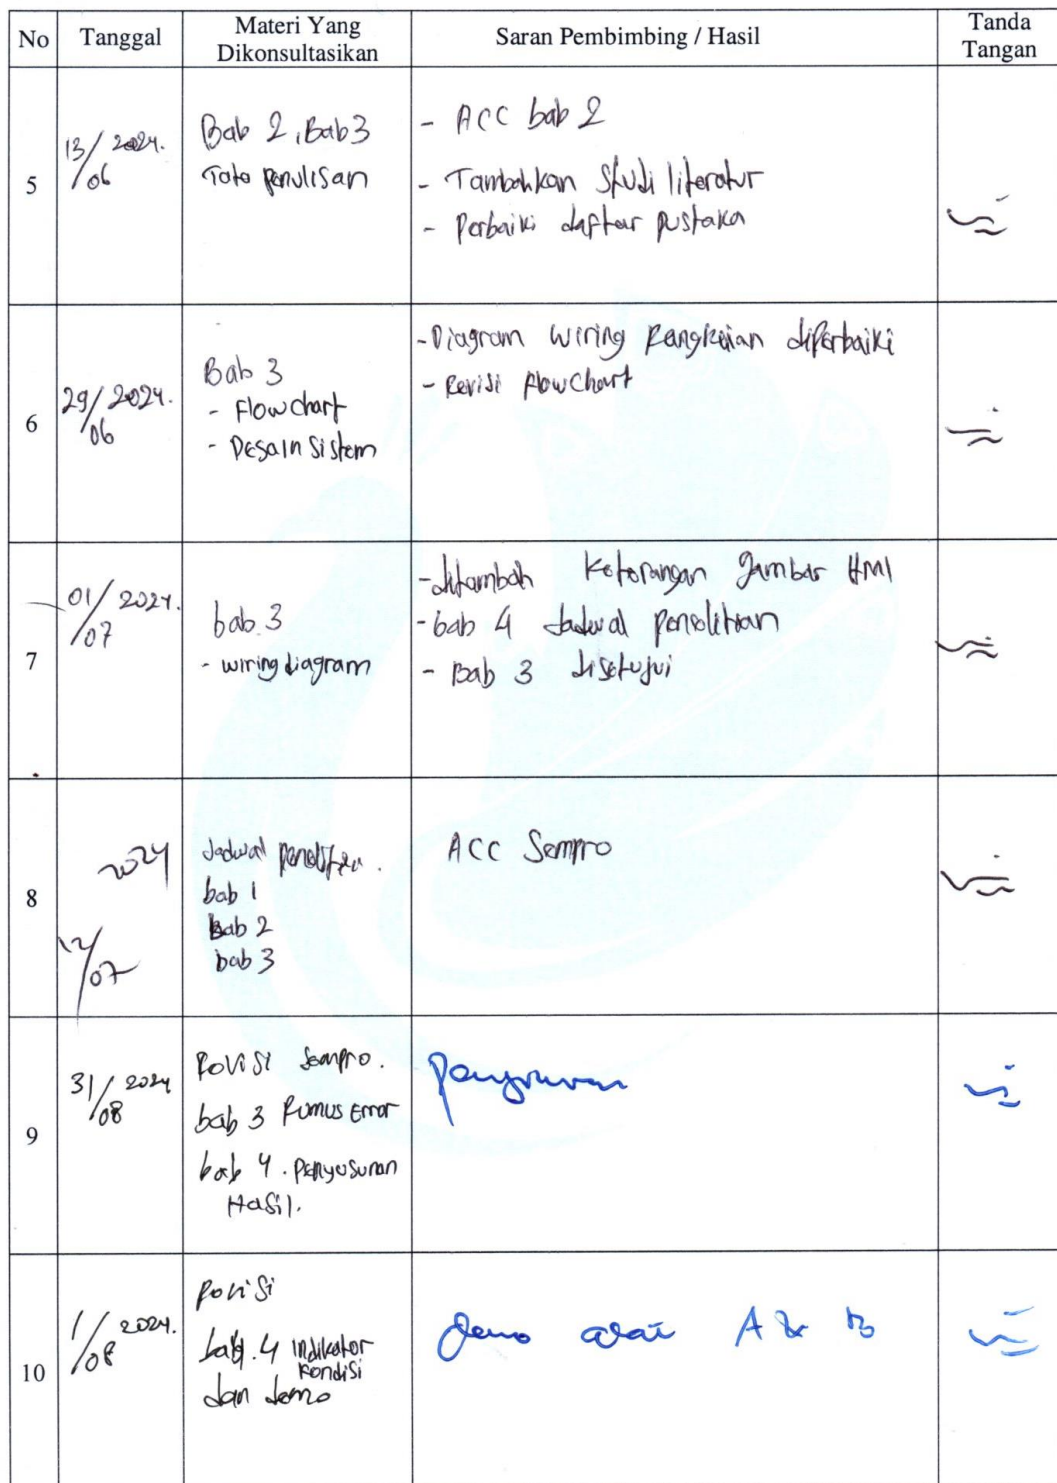 No Tanggal Materi Yang Dikonsultasikan Saran Pembimbing / Hasil Tanda Tangan
5
13/06 2024.
Bab 2, Bab 3
Tata penulisan
- ACC bab 2
- Tambahkan Studi literatur
- Perbaiki daftar pustaka
6
29/06 2024.
Bab 3
- Flowchart
- Desain Sistem
- Diagram wiring Rangkaian diperbaiki
- Revisi Flowchart
7
01/07 2024.
bab 3
- wiring diagram
- ditambah keterangan gambar HMI
- bab 4 Jadwal penelitian
- Bab 3 disetujui
8
12/07 2024
Jadwal penelitian.
bab 1
Bab 2
bab 3
ACC Sempro
9
31/08 2024
Revisi Sempro.
bab 3 Rumus Error
bab 4. Penyusunan
Hasil.
10
1/08 2024.
Revisi
bab. 4 Indikator
Kondisi
dan demo
Demo alat A & B